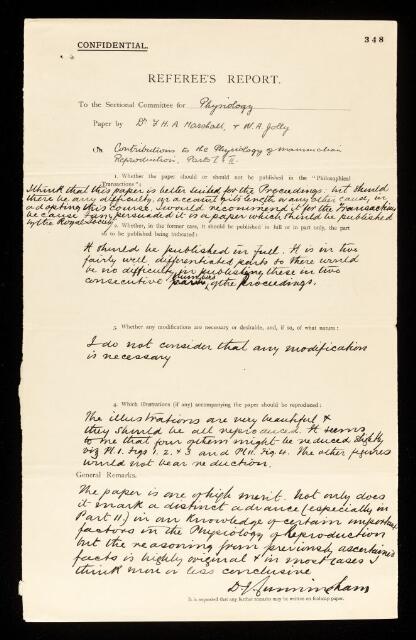 348
CONFIDENTIAL.
REFEREE'S REPORT.
To the Sectional Committee for Physiology
Paper by Dr F H. A. Marshall, & W. A. Jolly
On Contributions to the Physiology of Mammalian
Reproduction. Parts I & II
1. Whether the paper should or should not be published in the "Philosophical
Transactions":
I think that this paper is better suited for the Proceedings. but should
there be any difficulty, on account of its length or any other cause, in
adopting this course I would recommend it for the Transactions
because I am persuaded it is a paper which should be published
by the Royal Society.
2. Whether, in the former case, it should be published in full or in part only, the part
to be published being indicated:
It should be published in full. It is in two
fairly well differentiated parts so there would
be no difficulty in publishing these in two
consecutive numbers of the Proceedings.
3. Whether any modifications are necessary or desirable, and, if so, of what nature:
I do not consider that any modification
is necessary
4. Which illustrations (if any) accompanying the paper should be reproduced:
The illustrations are very beautiful &
they should be all reproduced. It seems
to me that four of them might be reduced slightly
viz Pl. I. figs 1. 2. & 3 and Pl II. Fig 4. The other figures
would not bear reduction.
General Remarks.
The paper is one of high merit. Not only does
it mark a distinct advance (especially in
Part II.) in our knowledge of certain important
factors in the Physiology of Reproduction
but the reasoning from previously ascertained
facts is highly original & in most cases I
think more or less conclusive
D. J. Cunningham
It is requested that any further remarks may be written on foolscap paper.